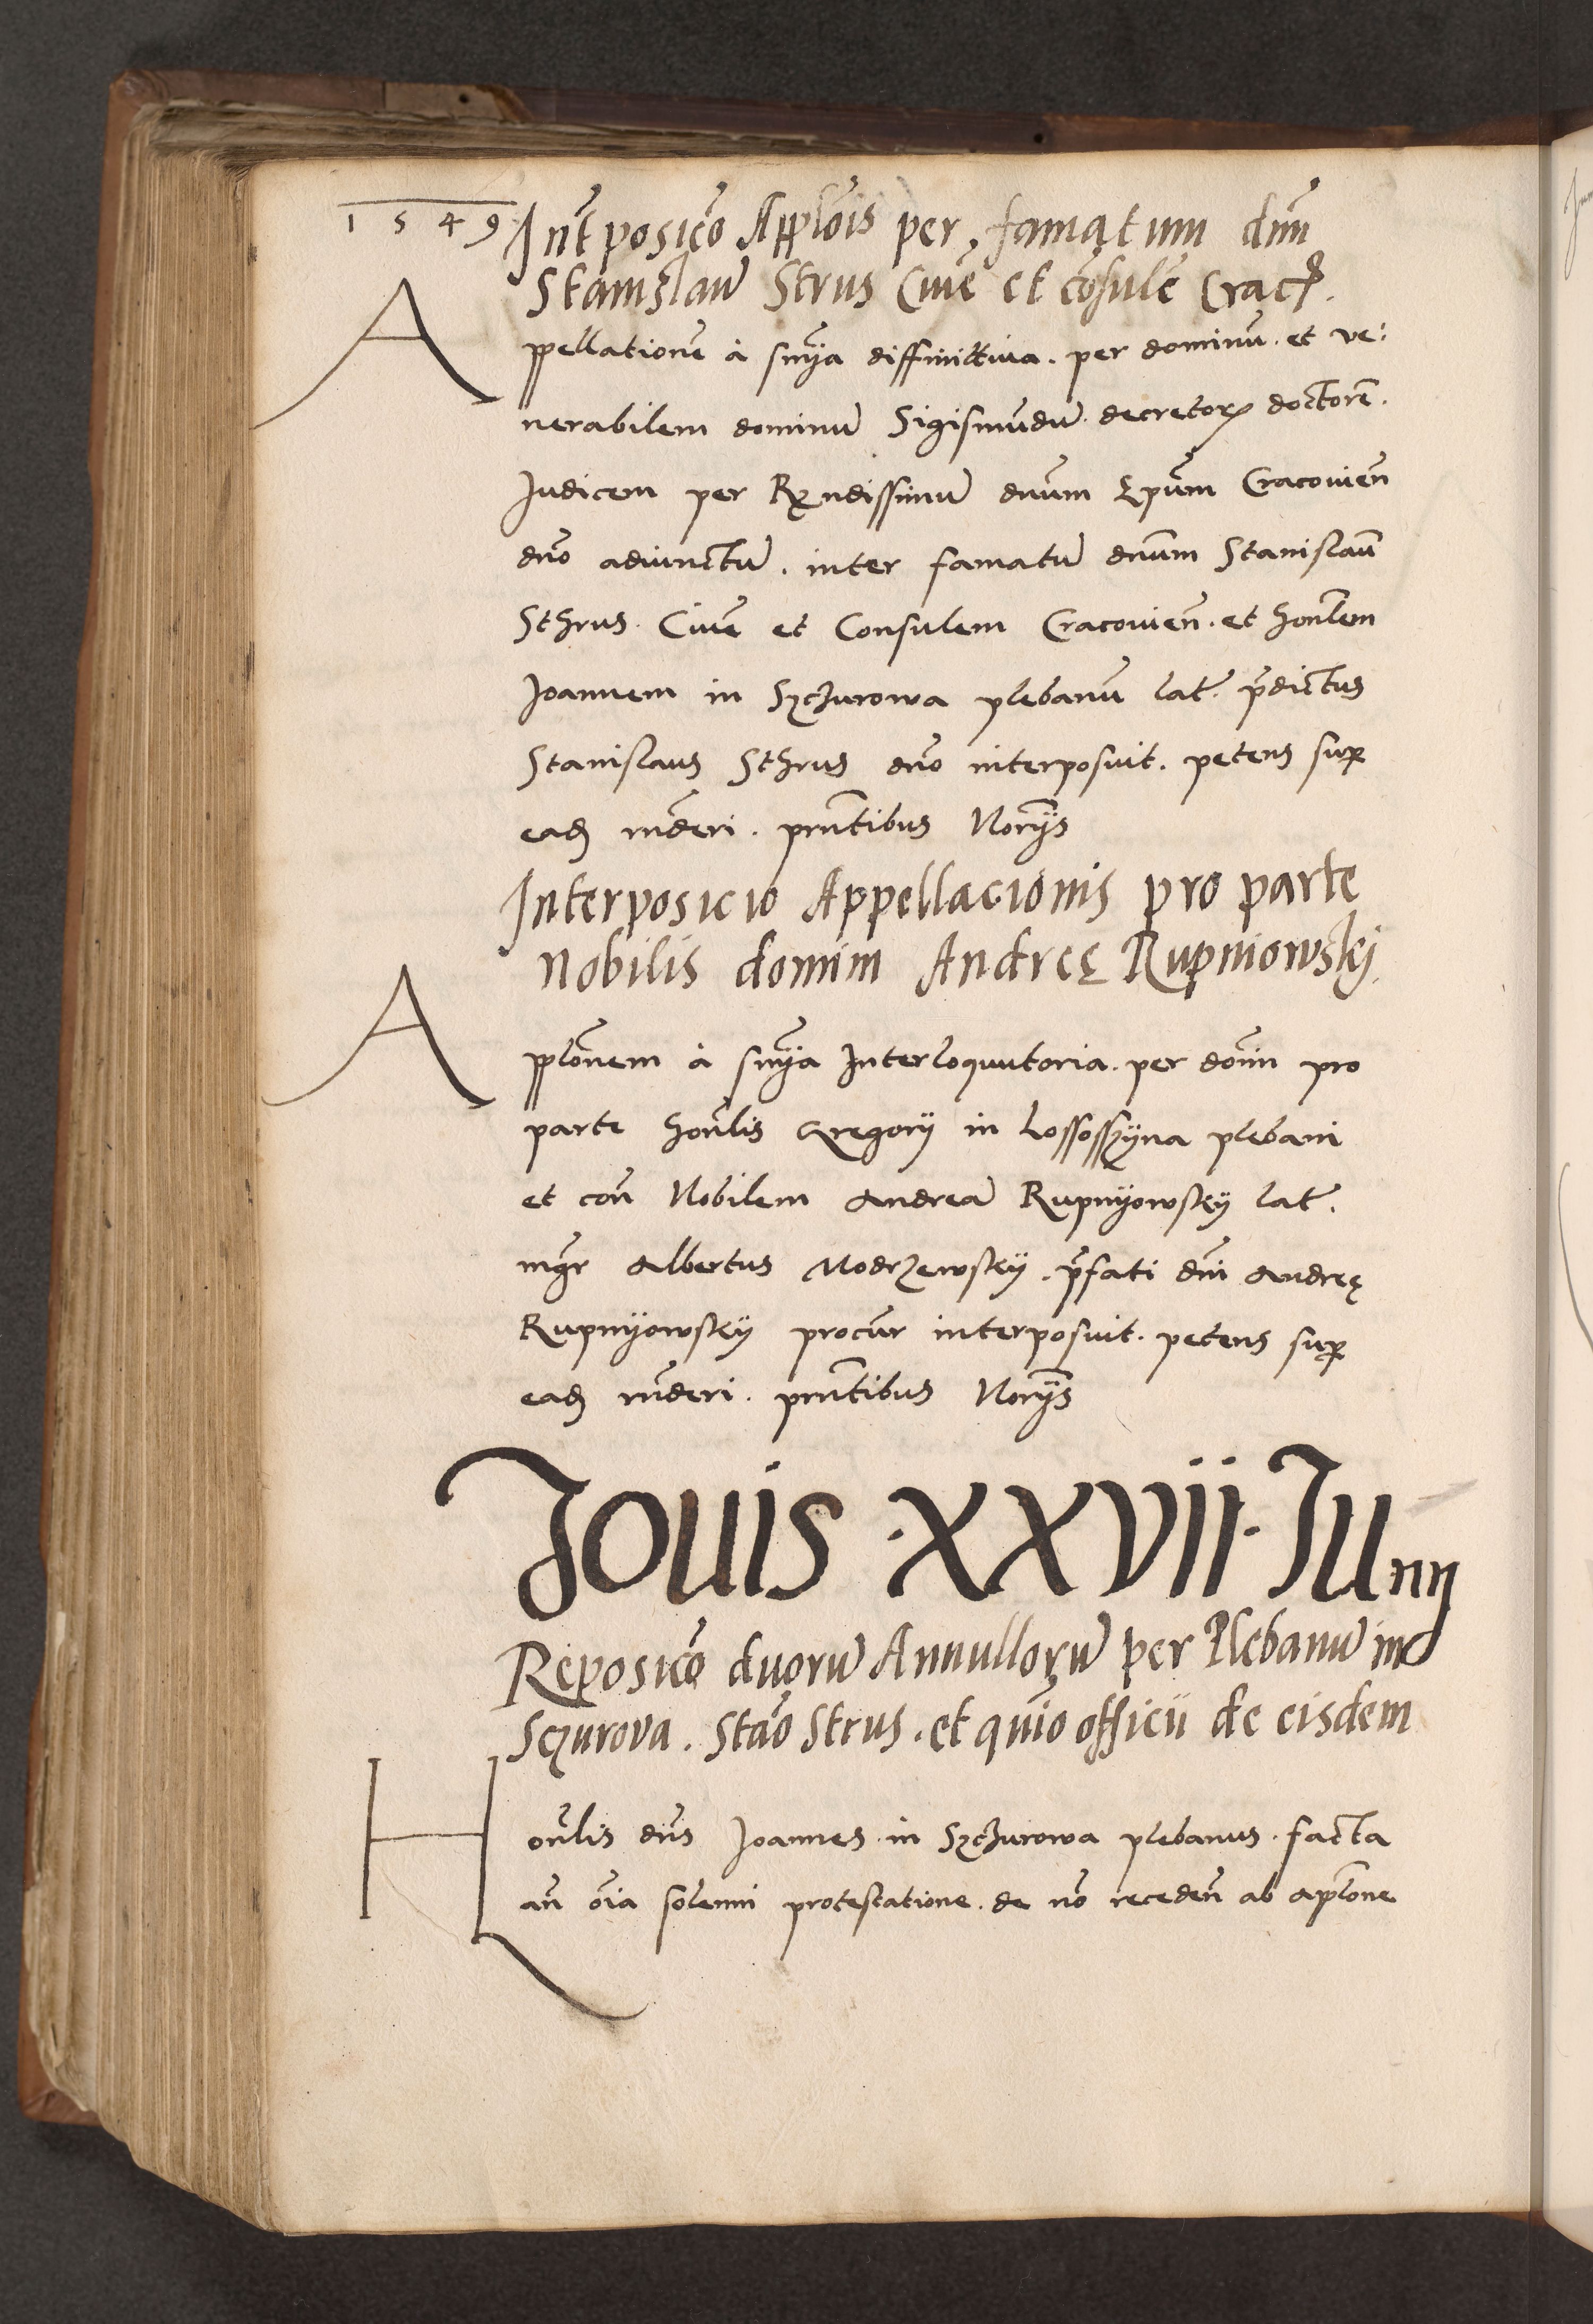 1549
Int̃posicõ Applõis per famatum dnũ
Stanislaũ Strus Ciuẽ et cõsulẽ Crac̃.
Appellationẽ à sñya diffinittiua. per dominũ. et ve:
nerabilem dominũ Sigismũdũ decretorꝝ doctorẽ.
Judicem per Rx̃ndissimũ dnũm Ep̃um Cracouieñ
dnõ adiunctũ. inter famatũ dnũm Stanislaũ
Sthrus. Ciuẽ et Consulem Cracouieñ. et honl̃em
Joannem in Sczczurowa plebanũ lat̃. p̃dictus
Stanislaus Sthrus dnõ interposuit. petens suꝑ
eadẽ rñderi. pñtibus Norĩjs
Interposicio Appellacionis pro parte
Nobilis domini Andreę Rupniowskj.
Applõnem à sñya Interloquutoria. per domĩ pro
parte honl̃is Gregorij in Lossossyna plebani
et coñ Nobilem Andreã Rupnÿowskÿ lat̃.
mg̃r Albertus Modrzewskÿ. p̃fati dñi Andreę
Rupnÿowskÿ procur̃ interposuit. petens suꝑ
eadẽ rñderi. pñtibus Norĩjs
Jouis .XXVII. Junij
Reposicõ duorũ Annullorũ per Plebanũ in
Sczurova. Staõ Strus. et quĩo officii de eisdem
Honl̃is dñs Joannes in Sczczurowa plebanus. facta
añ oĩa solenni protestatione. de nõ recedeñ ab aplõne